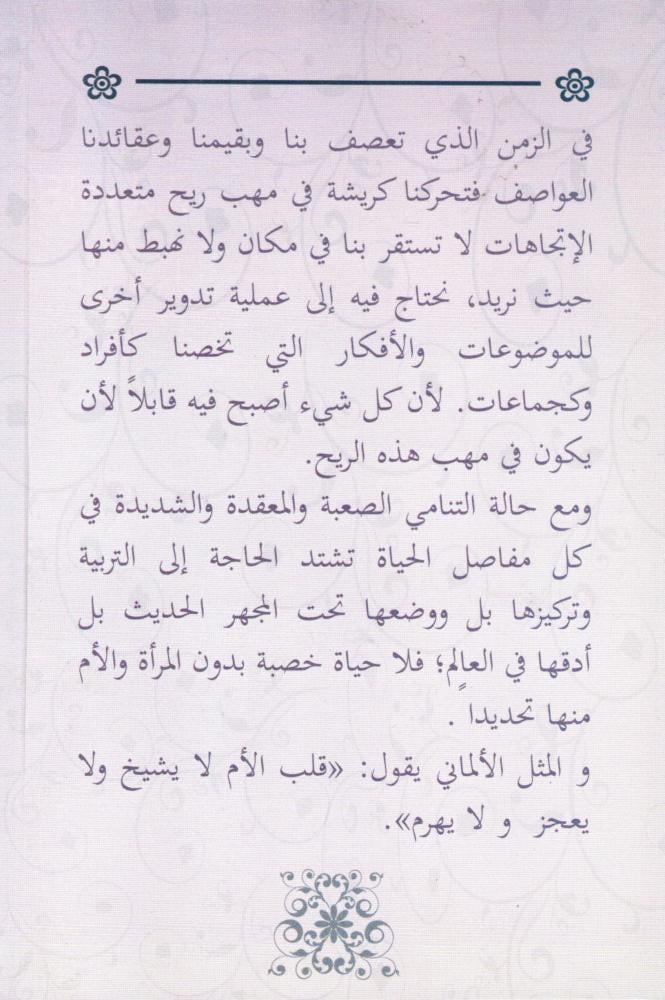 في الزمن الذي تعصف بنا وبقيمنا وعقائدنا
العواصف فتحركنا كريشة في مهب ريح متعددة
الإتجاهات لا تستقر بنا في مكان ولا نهبط منها
حيث نريد، نحتاج فيه إلى عملية تدوير أخرى
للموضوعات والأفكار التي تخصنا كأفراد
وكجماعات. لأن كل شيء أصبح فيه قابلاً لأن
يكون في مهب هذه الريح.
ومع حالة التنامي الصعبة والمعقدة والشديدة في
كل مفاصل الحياة تشتد الحاجة إلى التربية
وتركيزها بل ووضعها تحت المجهر الحديث بل
أدقها في العالم؛ فلا حياة خصبة بدون المرأة والأم
منها تحديداً .
و المثل الألماني يقول: «قلب الأم لا يشيخ ولا
يعجز و لا يهرم».